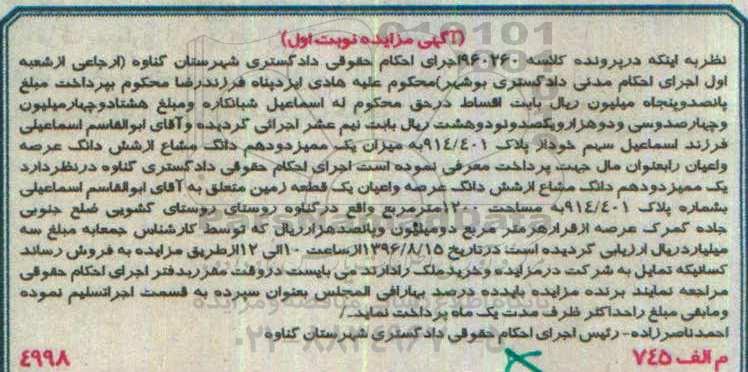 (آگهی مزایده نوبت اول)
نظر به اینکه در پرونده کلاسه ۹۶۰۲۶۰ اجرای احکام حقوقی دادگستری شهرستان گناوه (ارجاعی از شعبه
اول اجرای احکام مدنی دادگستری بوشهر) محکوم علیه هادی ایزدپناه فرزند رضا محکوم بپرداخت مبلغ
پانصد و پنجاه میلیون ریال بابت اقساط در حق محکوم له اسماعیل شبانکاره و مبلغ هشتاد و چهار میلیون
و چهارصد و سی و دو هزار و یکصد و نود و هشت ریال بابت نیم عشر اجرائی گردیده و آقای ابوالقاسم اسماعیلی
فرزند اسماعیل سهم خود از پلاک ۹۱۴/۴۰۱ به میزان یک ممیز دو دهم دانگ مشاع از شش دانگ عرصه
واعیان رابعنوان مال جهت پرداخت معرفی نموده است اجرای احکام حقوقی دادگستری گناوه در نظر دارد
یک ممیز دو دهم دانگ مشاع از شش دانگ عرصه واعیان یک قطعه زمین متعلق به آقای ابوالقاسم اسماعیلی
بشماره پلاک ۹۱۴/۴۰۱ به مساحت ۱۲۰۰ مترمربع واقع در گناوه روستای روستای کشویی ضلع جنوبی
جاده گمرک عرصه از قرار هر متر مربع دو میلیون و پانصد هزار ریال که توسط کارشناس جمعا به مبلغ سه
میلیارد ریال ارزیابی گردیده است در تاریخ ۱۳۹۶/۸/۱۵ از ساعت ۱۰ الی ۱۲ از طریق مزایده به فروش رساند
کسانیکه تمایل به شرکت در مزایده و خرید ملک را دارند می بایست در وقت مقرر بدفتر اجرای احکام حقوقی
مراجعه نمایند برنده مزایده باید ده درصد بها را فی المجلس بعنوان سپرده به قسمت اجرا تسلیم نموده
و مابقی مبلغ را حداکثر ظرف مدت یک ماه پرداخت نماید./
احمد ناصرزاده - رئیس اجرای احکام حقوقی دادگستری شهرستان گناوه
م الف ۷۴۵
۴۹۹۸